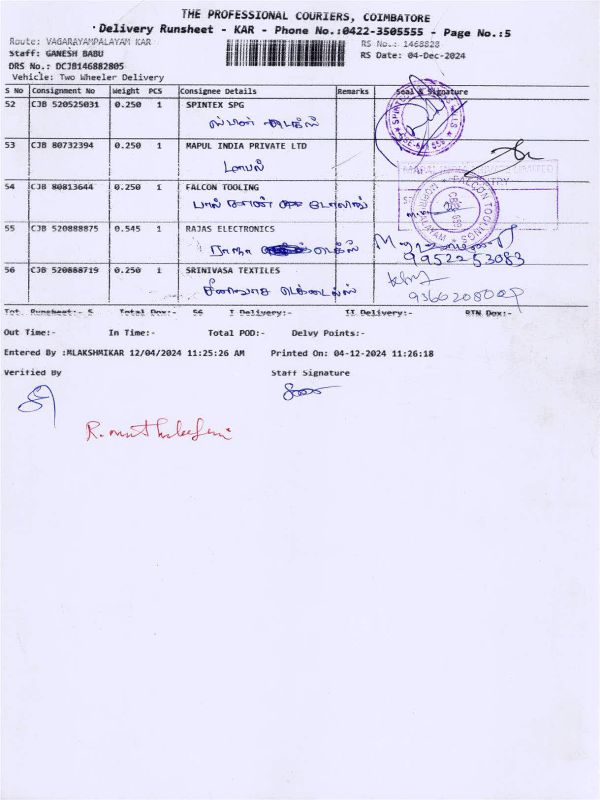 THE PROFESSIONAL COURIERS, COIMBATORE
Delivery Runsheet - KAR - Phone No.:0422-3505555 - Page No.:5
Route: VAGARAYAMPALAYAM KAR RS No.: 1468828
Staff: GANESH BABU RS Date: 04-Dec-2024
DRS No.: DCJB146882805
Vehicle: Two Wheeler Delivery
S No Consignment No Weight PCS Consignee Details Remarks Seal & Signature
52 CJB 520525031 0.250 1 SPINTEX SPG
53 CJB 80732394 0.250 1 MAPUL INDIA PRIVATE LTD
54 CJB 80813644 0.250 1 FALCON TOOLING
FALCON TOOLINGS
55 CJB 520888875 0.545 1 RAJAS ELECTRONICS
9952253083
56 CJB 520888719 0.250 1 SRINIVASA TEXTILES
Tot. Runsheet:- 5 Total Dox:- 56 I Delivery:- II Delivery:- RTN Dox:-
Out Time:- In Time:- Total POD:- Delvy Points:-
Entered By :MLAKSHMIKAR 12/04/2024 11:25:26 AM Printed On: 04-12-2024 11:26:18
Verified By Staff Signature